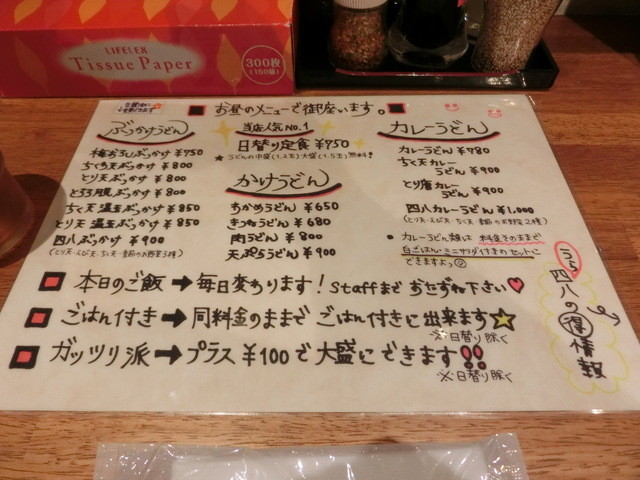 LIFELEX
Tissue Paper
300枚
(150組)
お昼のメニューで御座います。
ぶっかけうどん
梅おろしぶっかけ ¥750
ちく天ぶっかけ ¥800
とり天ぶっかけ ¥800
ぶっかけ ¥800
ちく天 温玉ぶっかけ ¥850
とり天 温玉ぶっかけ ¥850
四八ぶっかけ ¥900
当店人気No.1
日替り定食 ¥950
★うどんの中盛(1.2玉)大盛(1.5玉)無料!
かけうどん
わかめうどん ¥650
きつねうどん ¥680
肉うどん ¥800
天ぷらうどん ¥900
カレーうどん
カレーうどん ¥780
ちく天カレー
うどん ¥900
とり唐カレー
うどん ¥900
四八カレーうどん ¥1,000
● カレーうどん類は 料金そのままで
白ごはん・ミニサラダ付きのセットに
できますよ
本日のご飯 → 毎日変わります! Staffまで おたずね下さい♥
ごはん付き → 同料金のままで ごはん付きに出来ます☆
※日替り除く
ガッツリ派 → プラス ¥100で 大盛にできます!!
※日替り除く
うら
四八の得情報